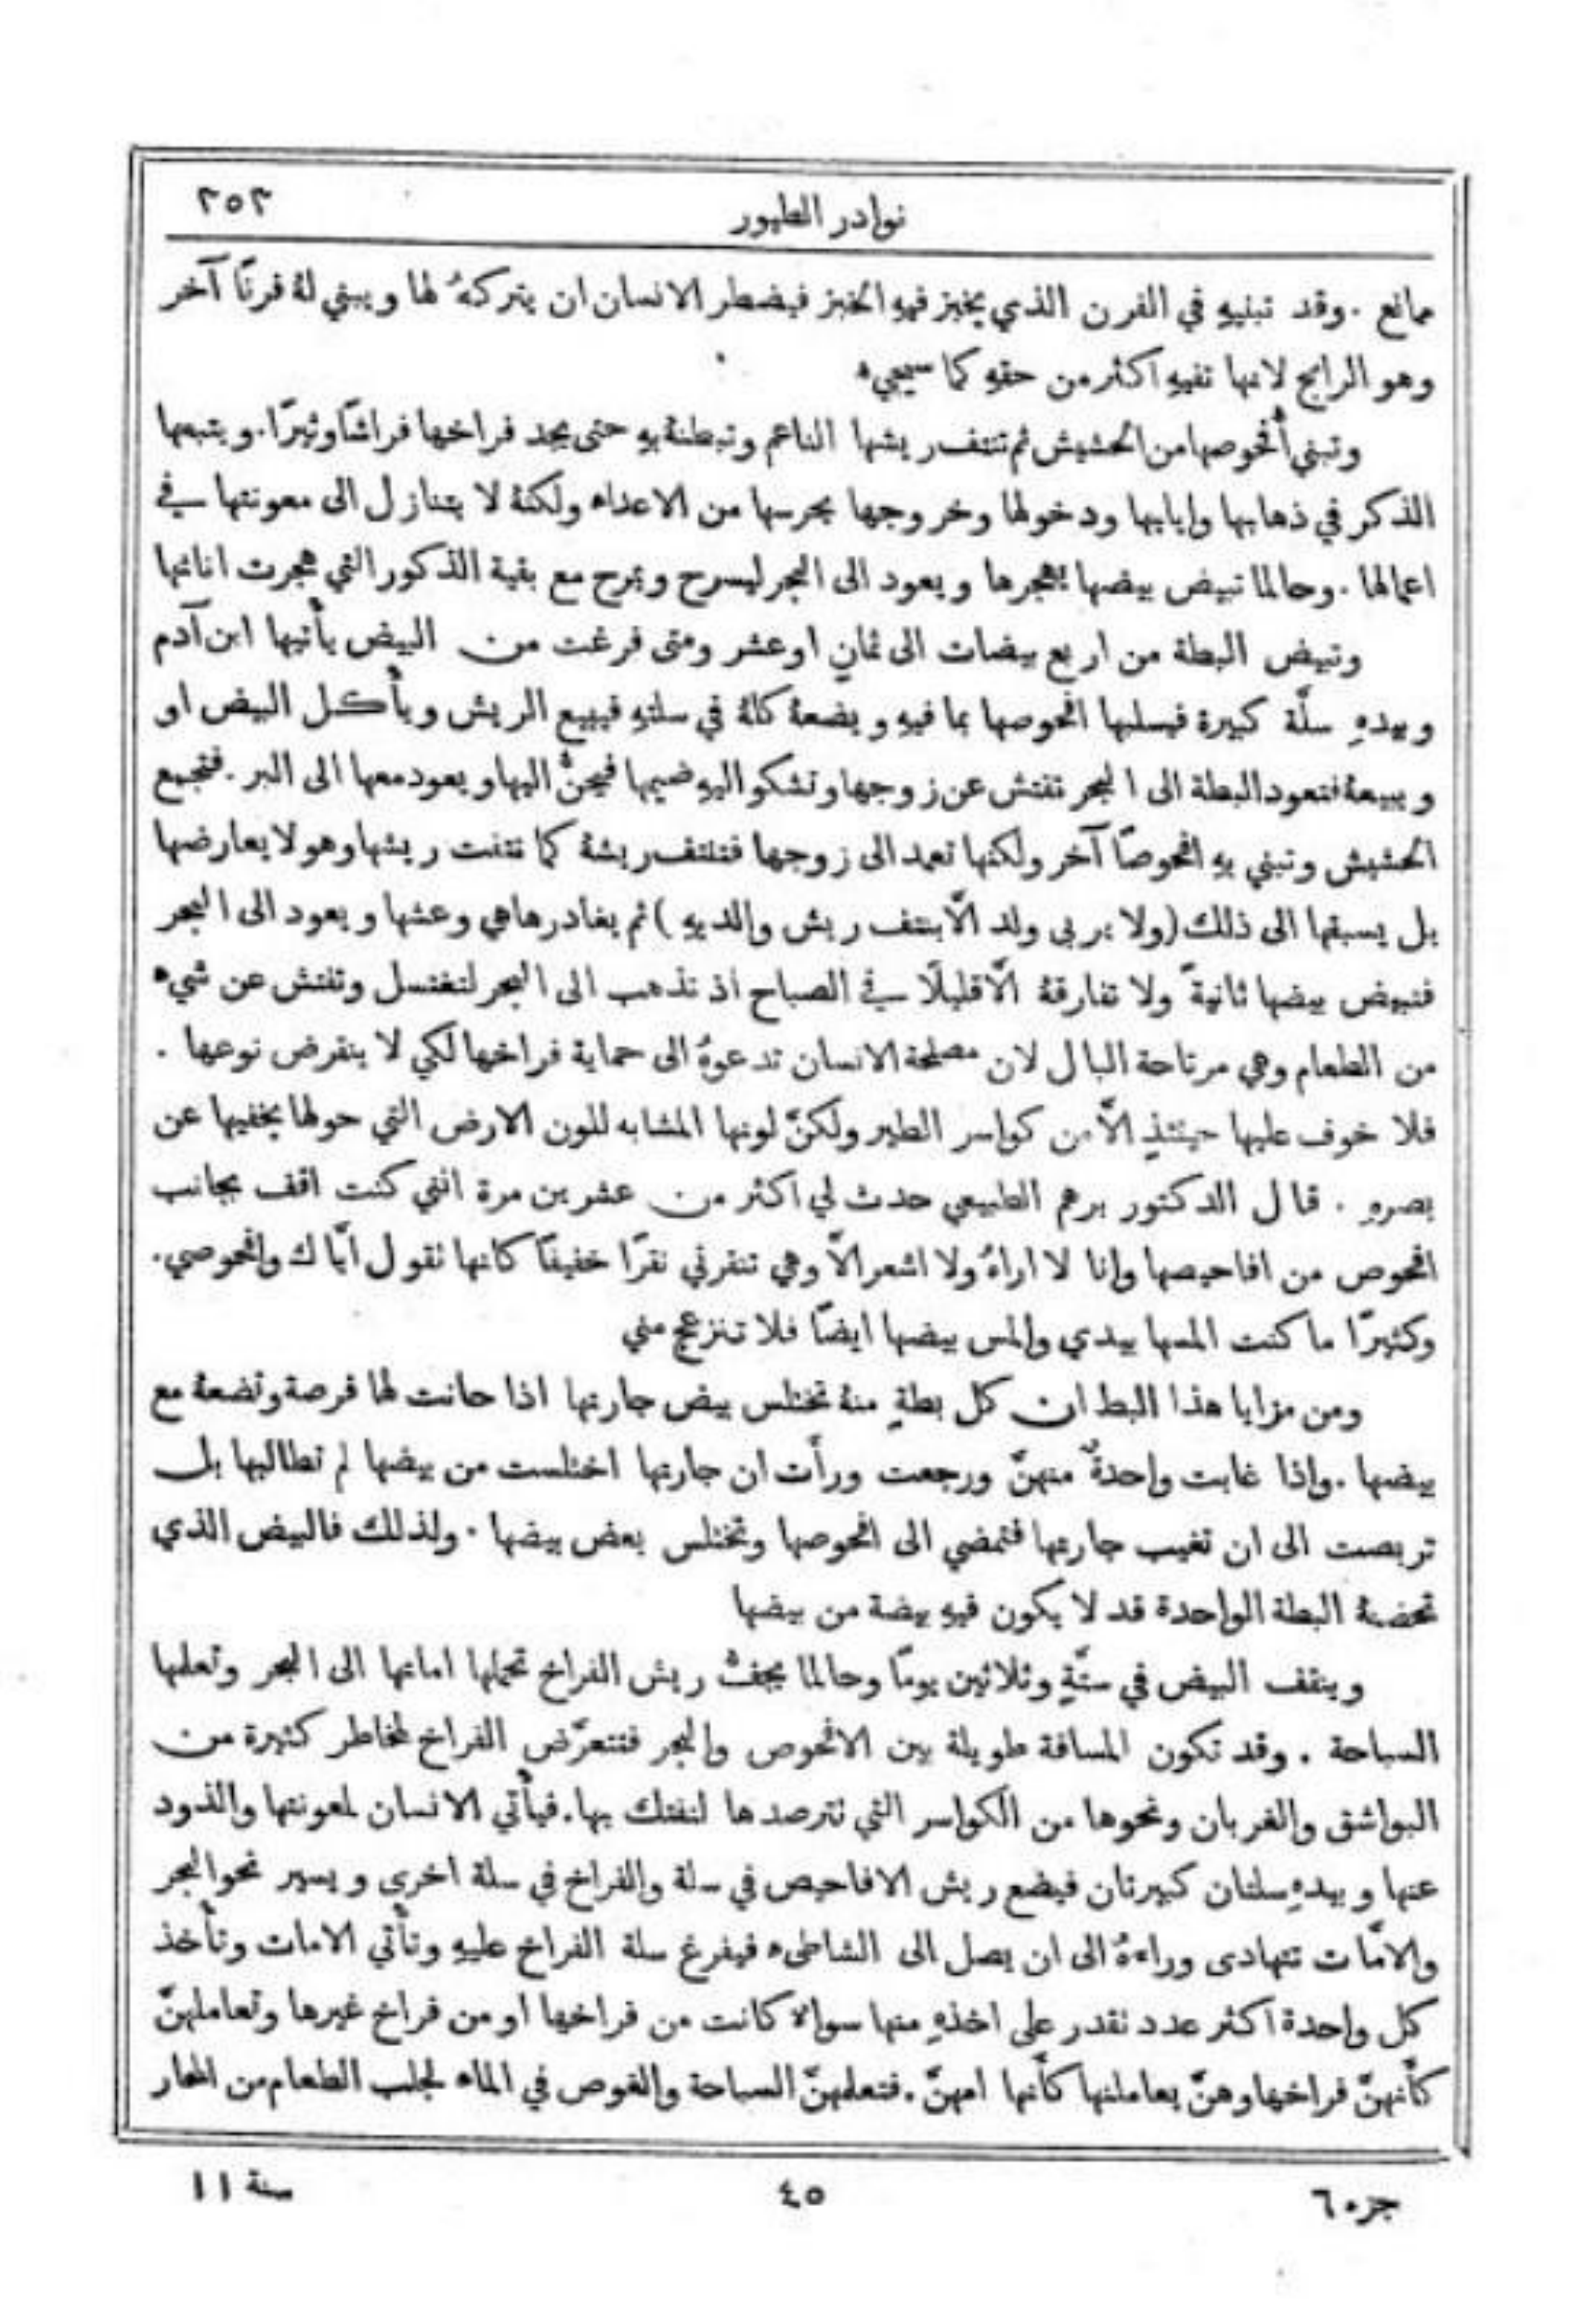 نوادر الطيور ٣٥٣
ممانع . وقد تبنيهِ في الفرن الذي يخبز فيهِ الخبز فيضطر الانسان ان يتركهُ لها ويبني لهُ فرنًا آخر
وهو الرابح لانها تفيهِ اكثر من حقهِ كما سيجيء
وتبني أُفحوصها من الحشيش ثم تنتف ريشها الناعم وتبطنهُ بهِ حتى يجد فراخها فراشًا وثيرًا . ويتبعها
الذكر في ذهابها وايابها ودخولها وخروجها يحرسها من الاعداء ولكنهُ لا يتنازل الى معونتها في
اعمالها . وحالما تبيض بيضها يهجرها ويعود الى البحر ليسرح ويمرح مع بقية الذكور التي هجرت اناثها
وتبيض البطة من اربع بيضات الى ثمانٍ او عشر ومتى فرغت من البيض يأتيها ابن آدم
وبيدهِ سلَّة كبيرة فيسلبها افحوصها بما فيهِ ويضعهُ كلهُ في سلتهِ فيبيع الريش ويأكل البيض او
ويبيعهُ فتعود البطة الى البحر تفتش عن زوجها وتشكو اليهِ ضيمها فيحنُّ اليها ويعود معها الى البر . فتجمع
الحشيش وتبني بهِ افحوصًا آخر ولكنها تعمد الى زوجها فتنتف ريشهُ كما نتفت ريشها وهو لا يعارضها
بل يسبقها الى ذلك (ولا يربى ولد الَّا بنتف ريش والديهِ) ثم يغادرها هي وعشها ويعود الى البحر
فتبيض بيضها ثانيةً ولا تفارقهُ الَّا قليلًا في الصباح اذ تذهب الى البحر لتغتسل وتفتش عن شيء
من الطعام وهي مرتاحة البال لان مصلحة الانسان تدعوهُ الى حماية فراخها لكي لا ينقرض نوعها .
فلا خوف عليها حينئذٍ الَّا من كواسر الطير ولكنَّ لونها المشابه للون الارض التي حولها يخفيها عن
بصرهِ . قال الدكتور برهم الطبيعي حدث لي اكثر من عشرين مرة انني كنت اقف بجانب
افحوص من افاحيصها وانا لا اراهُ ولا اشعر الَّا وهي تنقرني نقرًا خفيفًا كانها تقول ايَّاك وافحوصي .
وكثيرًا ما كنت المسها بيدي والمس بيضها ايضًا فلا تنزعج مني
ومن مزايا هذا البط ان كل بطةٍ منهُ تختلس بيض جارتها اذا حانت لها فرصة وتضعهُ مع
بيضها . واذا غابت واحدةٌ منهنَّ ورجعت ورأَت ان جارتها اختلست من بيضها لم تطالبها بل
تربصت الى ان تغيب جارتها فتمضي الى افحوصها وتختلس بعض بيضها . ولذلك فالبيض الذي
تحضنهُ البطة الواحدة قد لا يكون فيهِ بيضة من بيضها
وينقف البيض في ستَّةٍ وثلاثين يومًا وحالما يجفُّ ريش الفراخ تحملها اماتها الى البحر وتعلمها
السباحة . وقد تكون المسافة طويلة بين الافحوص والبحر فتتعرَّض الفراخ لمخاطر كثيرة من
البواشق والغربان ونحوها من الكواسر التي تترصدها لتفتك بها . فيأتي الانسان لمعونتها والذود
عنها وبيدهِ سلتان كبيرتان فيضع ريش الافاحيص في سلة والفراخ في سلة اخرى ويسير نحو البحر
والامَّات تتهادى وراءهُ الى ان يصل الى الشاطىء فيفرغ سلة الفراخ عليهِ وتأتي الامات وتأخذ
كل واحدة اكثر عدد تقدر على اخذهِ منها سوالا كانت من فراخها او من فراخ غيرها وتعاملهنَّ
كأَنهنَّ فراخها وهنَّ يعاملنها كأَنها امهنَّ . فتعلمهنَّ السباحة والغوص في الماء لجلب الطعام من المحار
جزء ٦ ٤٥ سنة ١١